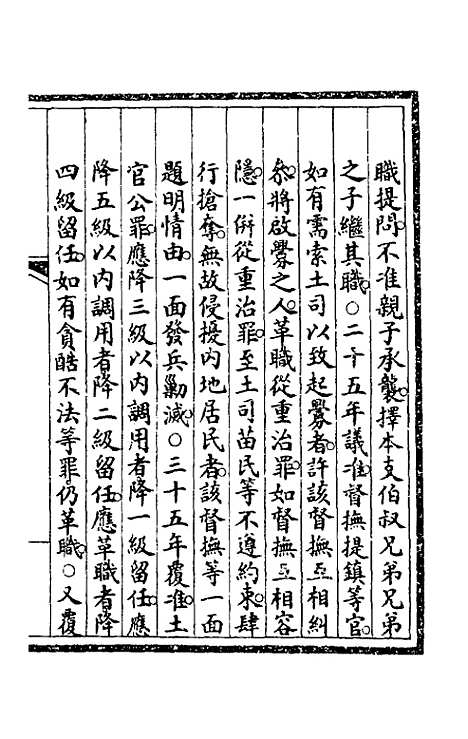 職提問不准親子承襲擇本支伯叔兄弟兄弟
之子繼其職○二十五年議准督撫提鎮等官
如有需索土司以致起釁者許該督撫互相糾
叅將啟釁之人革職從重治罪如督撫互相容
隱一併從重治罪至土司苗民等不遵約束肆
行搶奪無故侵擾内地居民者該督撫等一面
題明情由一面發兵勦滅○三十五年覆准土
官公罪應降三級以内調用者降一級留任應
降五級以内調用者降二級留任應革職者降
四級留任如有貪酷不法等罪仍革職○又覆